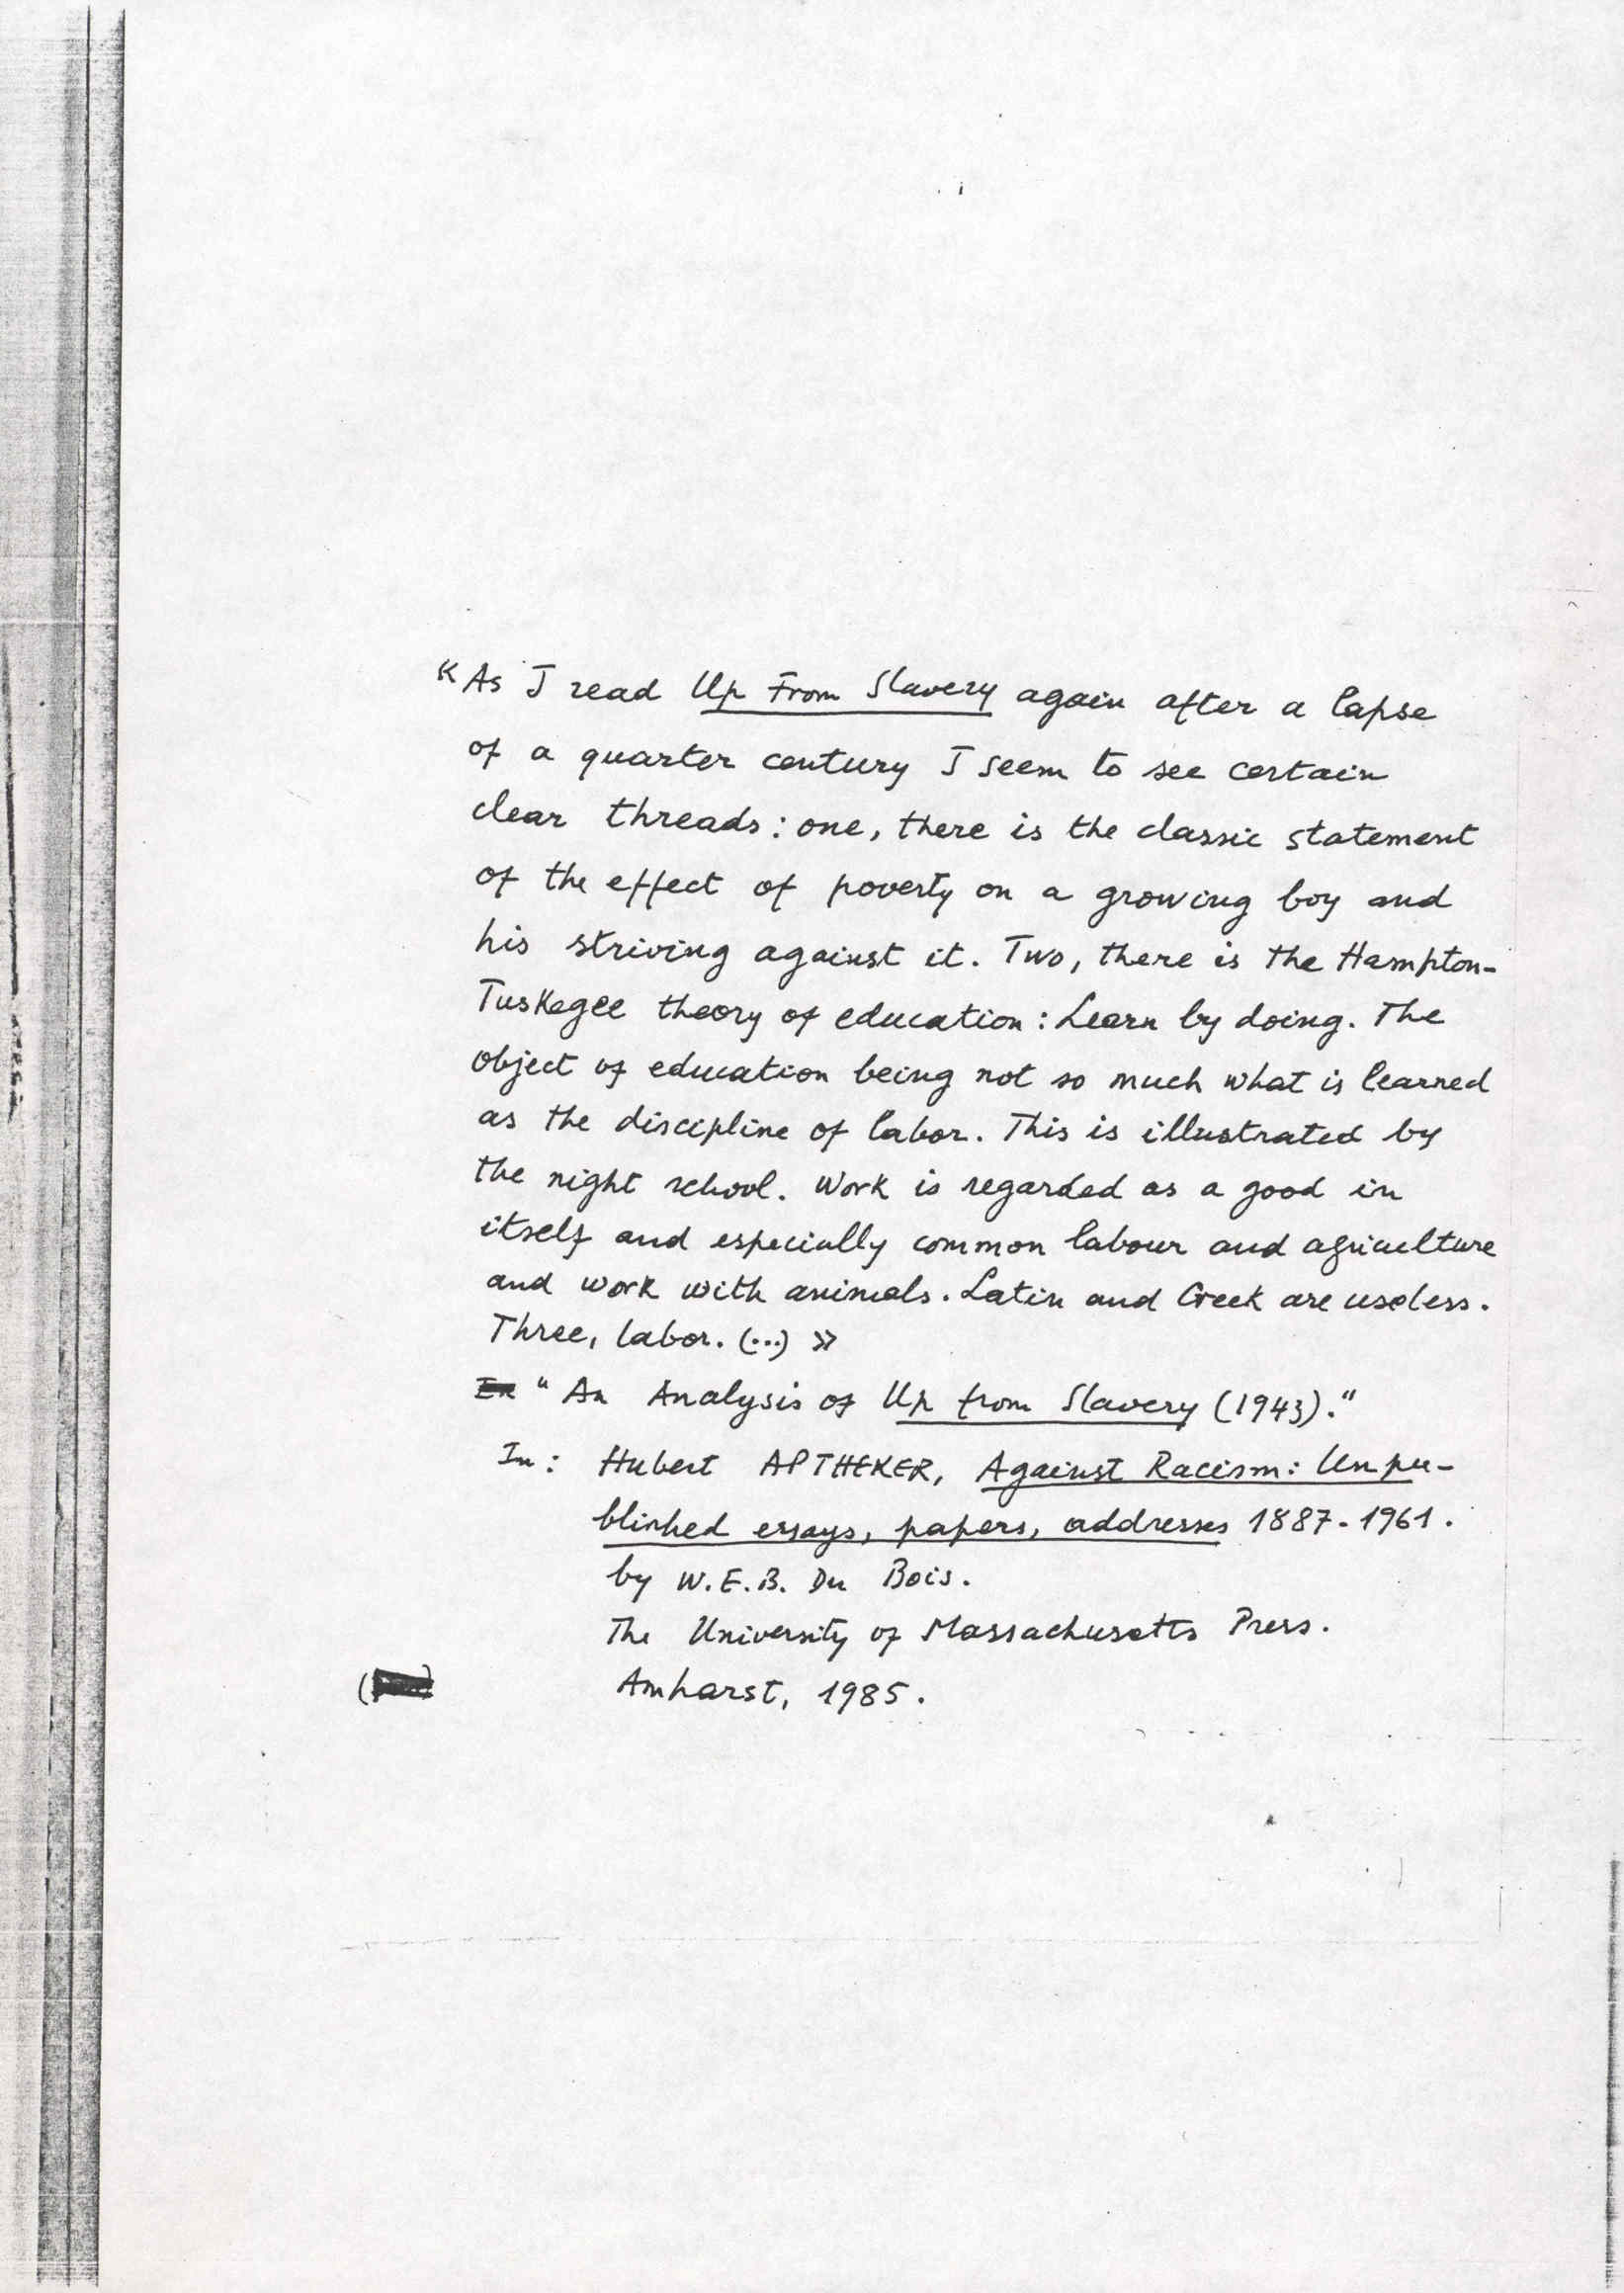 «As I read Up From Slavery again after a lapse
of a quarter century I seem to see certain
clear threads: one, there is the classic statement
of the effect of poverty on a growing boy and
his striving against it. Two, there is the Hampton-
Tuskegee theory of education: Learn by doing. The
object of education being not so much what is learned
as the discipline of labor. This is illustrated by
the night school. Work is regarded as a good in
itself and especially common labour and agriculture
and work with animals. Latin and Greek are useless.
Three, labor. (...) »
"An Analysis of Up from Slavery (1943)."
In: Hubert APTHEKER, Against Racism: Unpu-
blished essays, papers, addresses 1887-1961.
by W.E.B. Du Bois.
The University of Massachusetts Press.
Amharst, 1985.